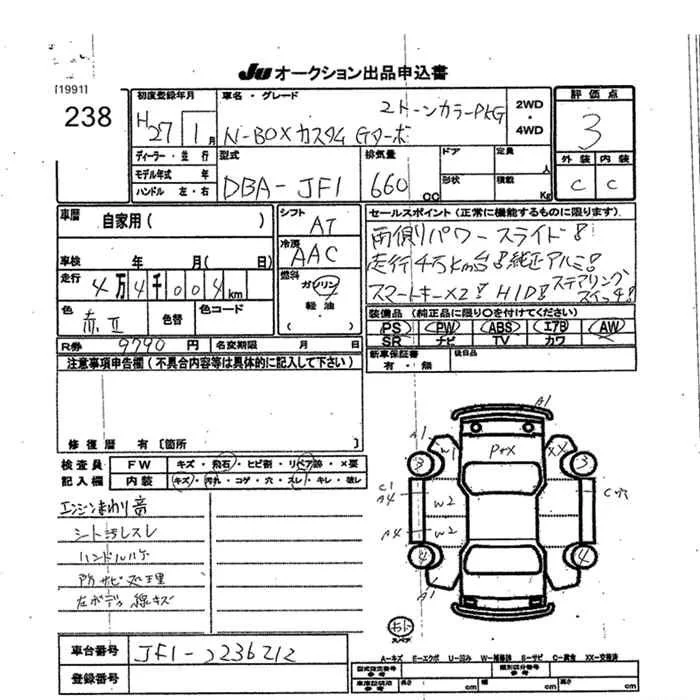 JU オークション出品申込書
[1991]
238
初度登録年月
H27 1月
車名・グレード
2トーンカラーPKG
N-BOXカスタム Gターボ
2WD
・
4WD
評価点
3
外装 内装
C C
ディーラー・並行
モデル年式 年
ハンドル 左・右
型式
DBA-JF1
排気量
660 CC
ドア
定員
人
形状
積載
Kg
車歴
自家用( )
シフト
AT
セールスポイント(正常に機能するものに限ります)
両側パワースライド!
走行4万km台!純正アルミ!
スマートキー×2! HID! ステアリングスイッチ!
車検 年 月( 日)
冷房
AAC
走行
4万4千004km
燃料
ガソリン
軽油
色
色替
色コード
装備品(純正品に限り○を付けてください)
PS PW ABS エアB AW
SR ナビ TV カワ
R券 9790円
名変期限 月 日
新車保証書
有・無
後日品
注意事項申告欄(不具合内容等は具体的に記入して下さい)
修復歴 有〔箇所 〕
検査員
記入欄
FW キズ・飛石・ヒビ割・リペア跡・×要
内装 キズ・汚れ・コゲ・穴・スレ・キレ・破レ
エンジンまわり音
シート汚レスレ
ハンドルハゲ
防サビ処理
左ボディ線キズ
A1
A1
W1
P0X
XX
3
3
C1
A4
W2
A4
W2
4
4
A1
スペア
車台番号 JF1-2236212
登録番号
A-キズ E-エクボ U-凹み W-補修跡 S-サビ C-腐食 XX-交換済
型式指定番号
参考
類別区分番号
車庫証明用
参考
長さ cm
幅 cm
高さ cm